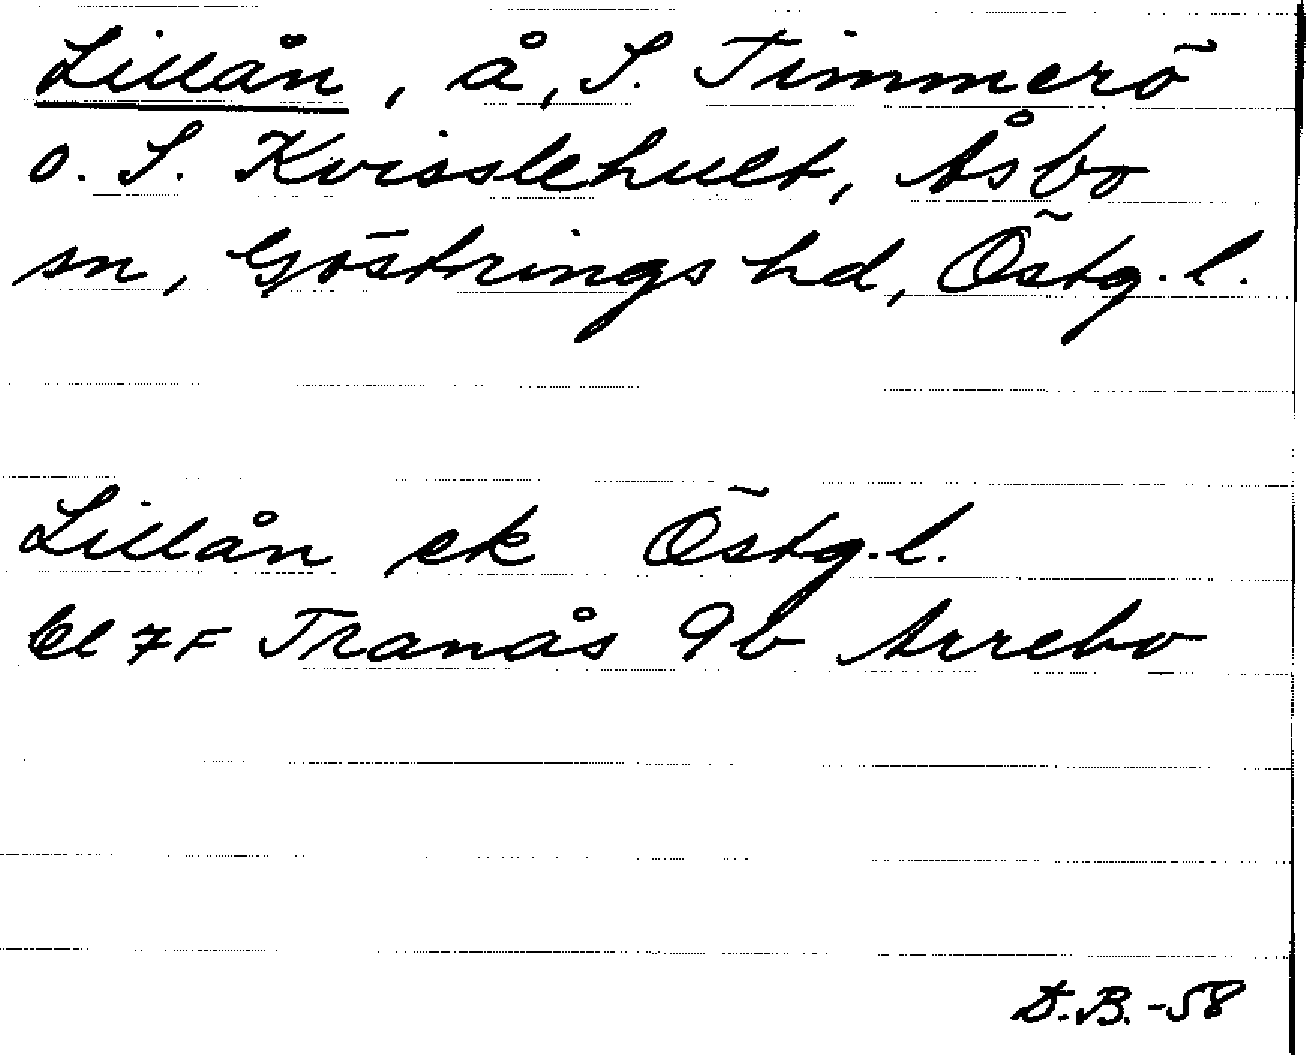 Lillån, å, S. Timmerö
o. S. Kvisslehult, Åsbo
sn, Göstrings hd, Östg. l.
Lillån ek Östg. l.
bl 7F Tranås 9b Arrebo
D.B. -58